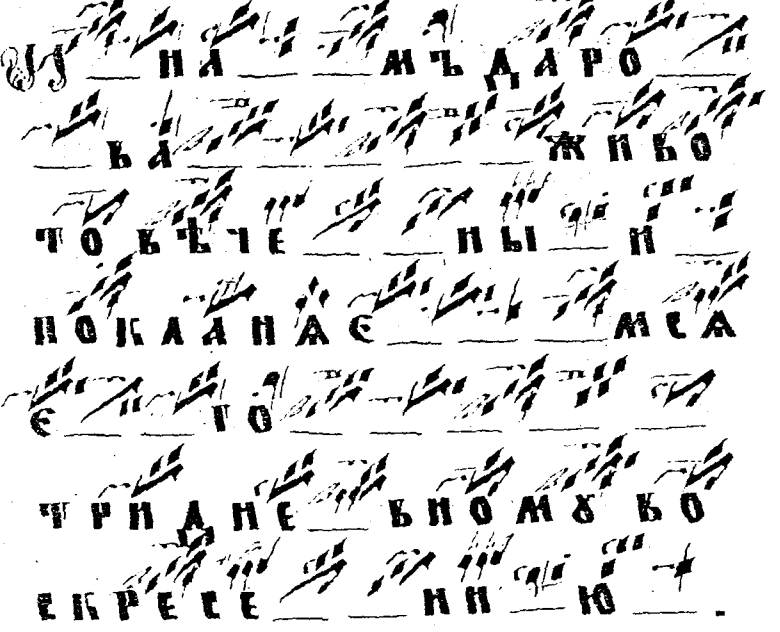 И НА МЪ ДАРО
ВА ЖИВО
ТО ВѢЧЕ НЫ И
ПОКЛАНѦЄ МСѦ
Є ГО
ТРИДНЕ ВНОМꙊ ВО
СКРЕСЕ НИ Ю .